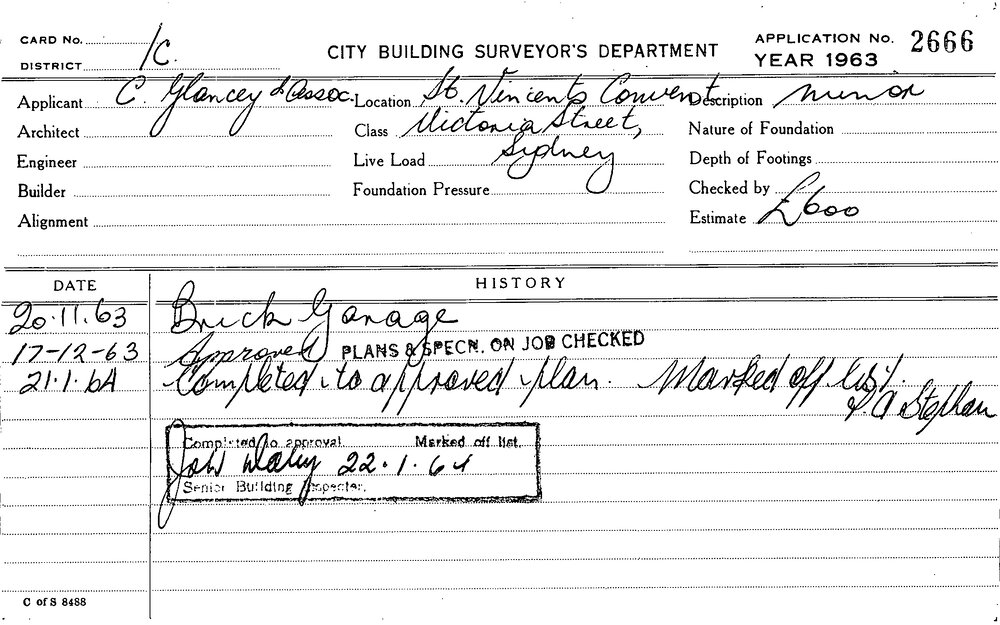 CARD No.
DISTRICT /C.
CITY BUILDING SURVEYOR'S DEPARTMENT
APPLICATION No. 2666
YEAR 1963
Applicant C. Glancey & Assoc. Location St. Vincents Convent Description minor
Architect Class Victoria Street, Nature of Foundation
Engineer Live Load Sydney Depth of Footings
Builder Foundation Pressure Checked by
Alignment Estimate £600
DATE HISTORY
20.11.63 Brick Garage
17-12-63 Approved PLANS & SPECN. ON JOB CHECKED
21.1.64 Completed to approved plan. Marked off list.
Stephan
Completed to approval Marked off list.
22.1.64
Senior Building Inspector.
C of S 8488